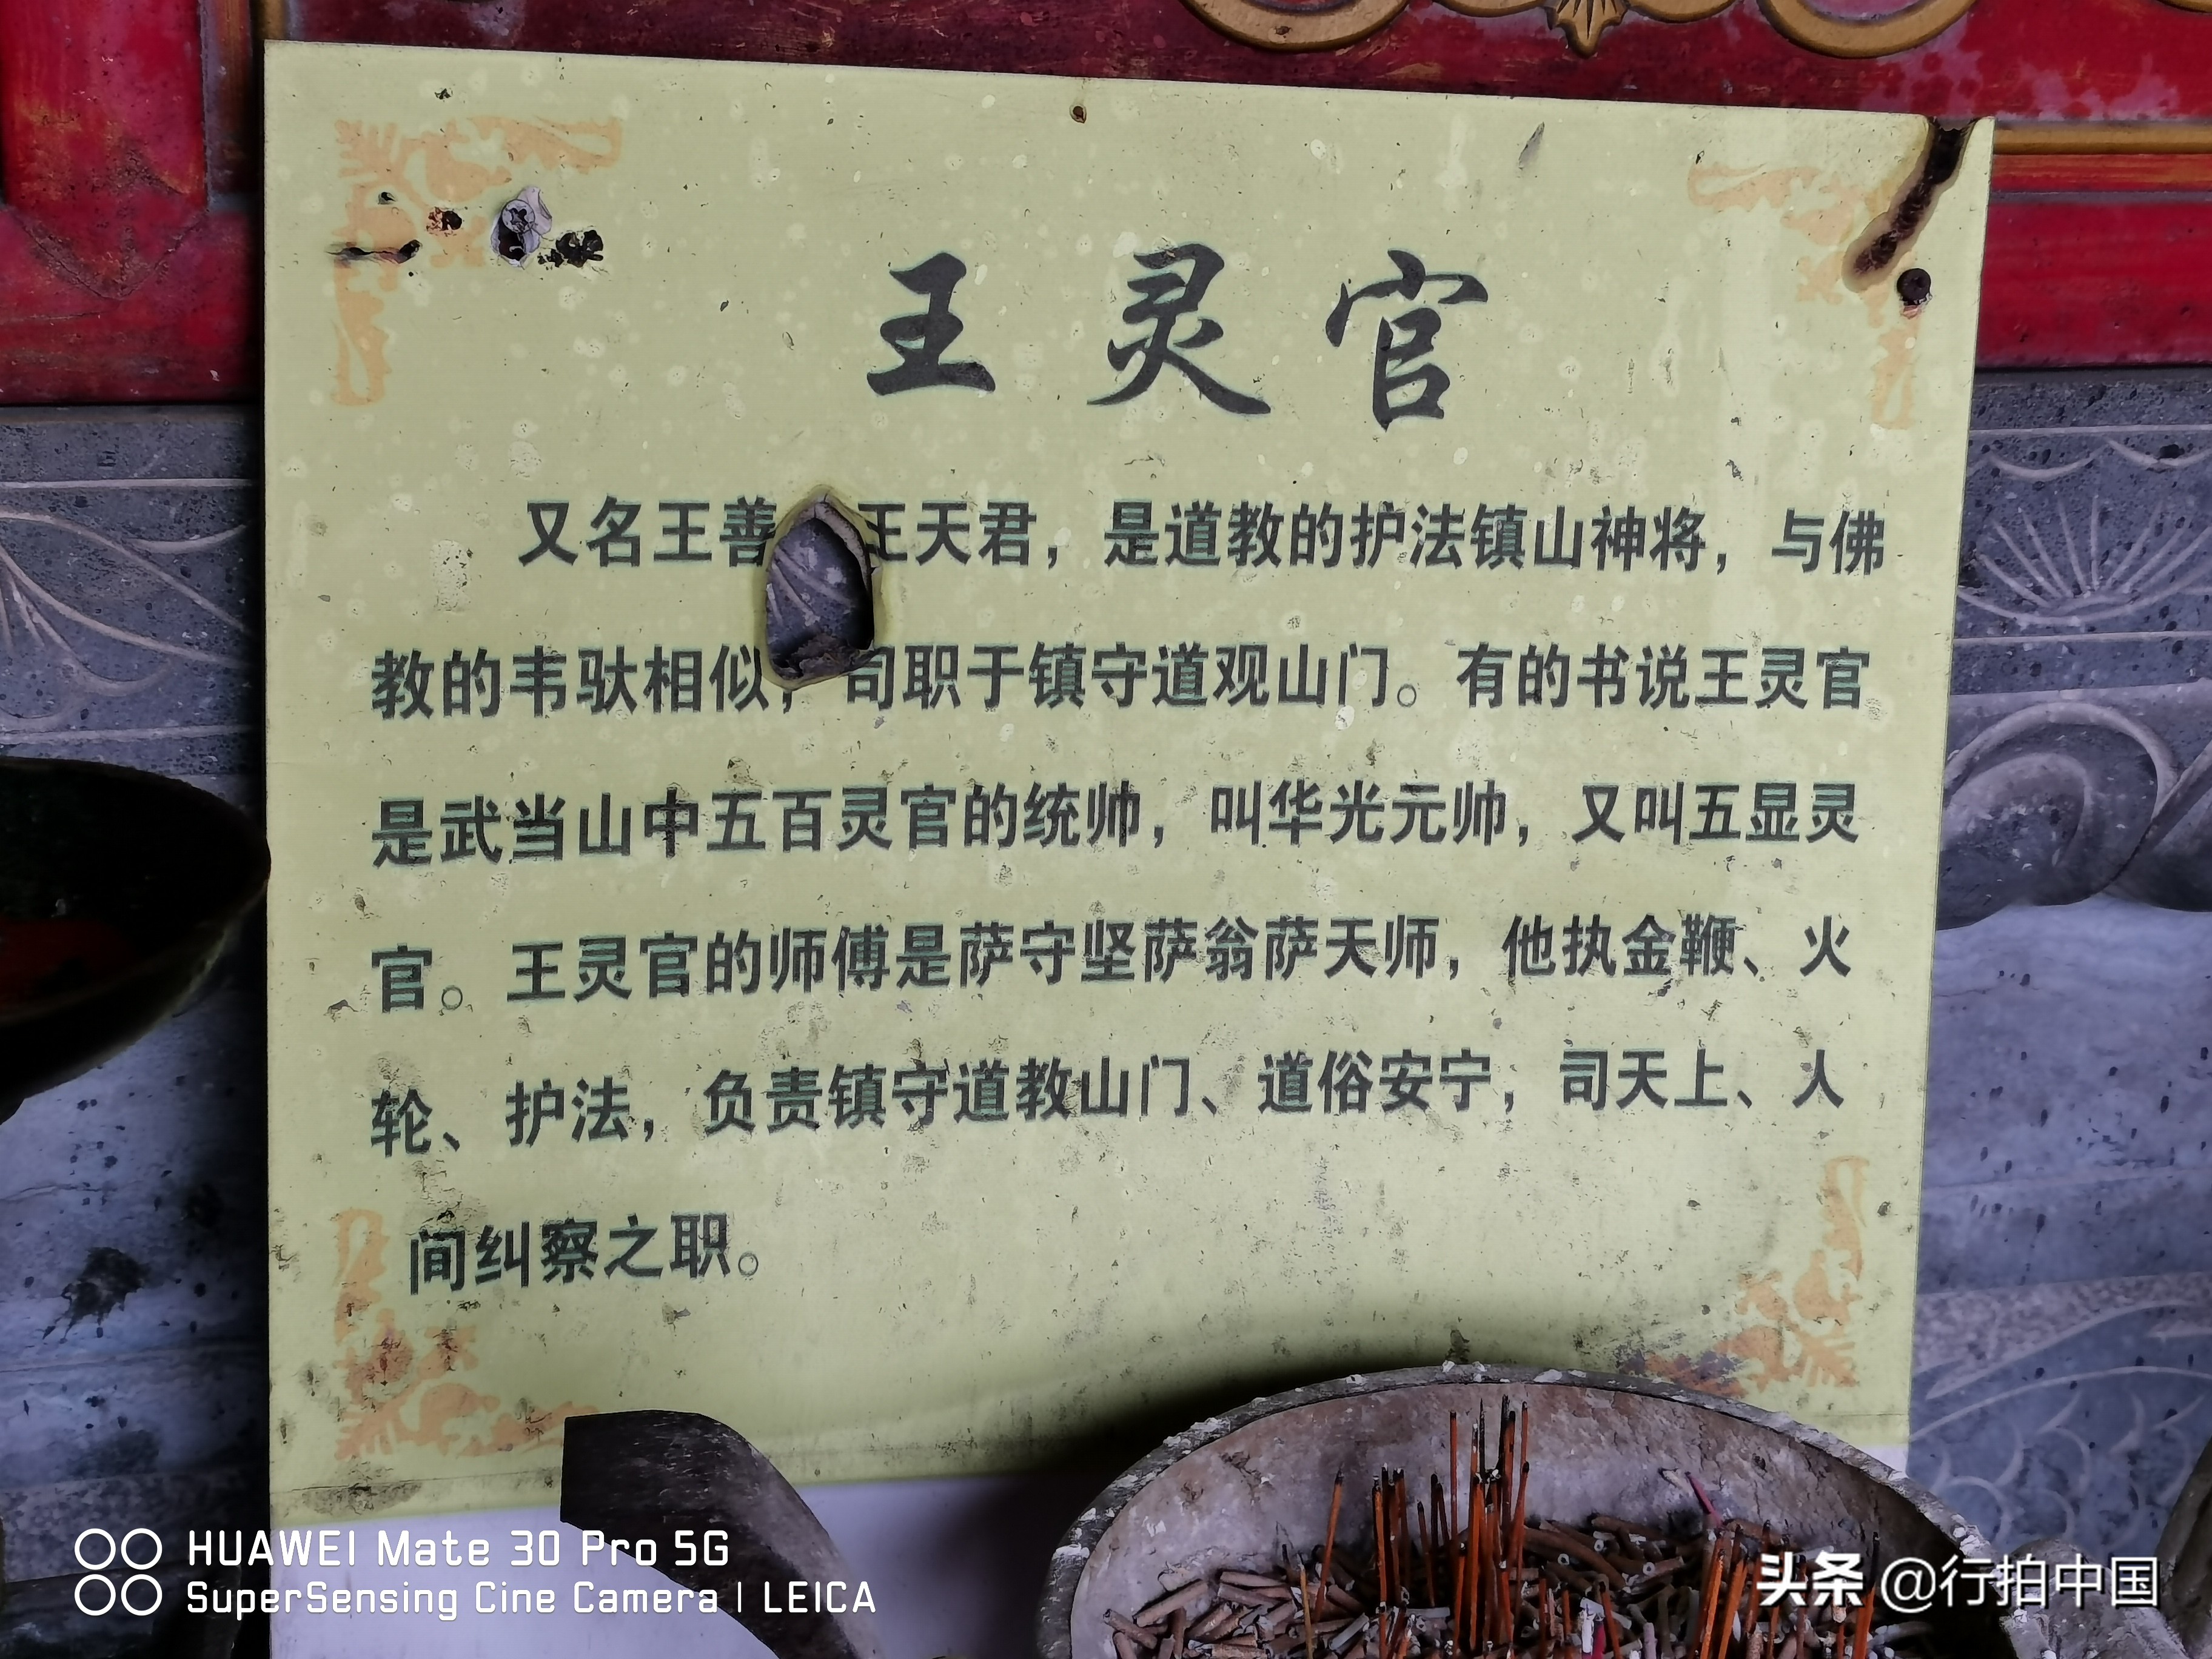 王灵官
又名王善 王天君，是道教的护法镇山神将，与佛
教的韦驮相似，司职于镇守道观山门。有的书说王灵官
是武当山中五百灵官的统帅，叫华光元帅，又叫五显灵
官。王灵官的师傅是萨守坚萨翁萨天师，他执金鞭、火
轮、护法，负责镇守道教山门、道俗安宁，司天上、人
间纠察之职。
HUAWEI Mate 30 Pro 5G
SuperSensing Cine Camera | LEICA
头条 @行拍中国